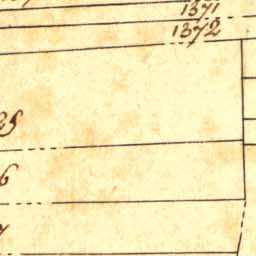 1371
1372
25
6